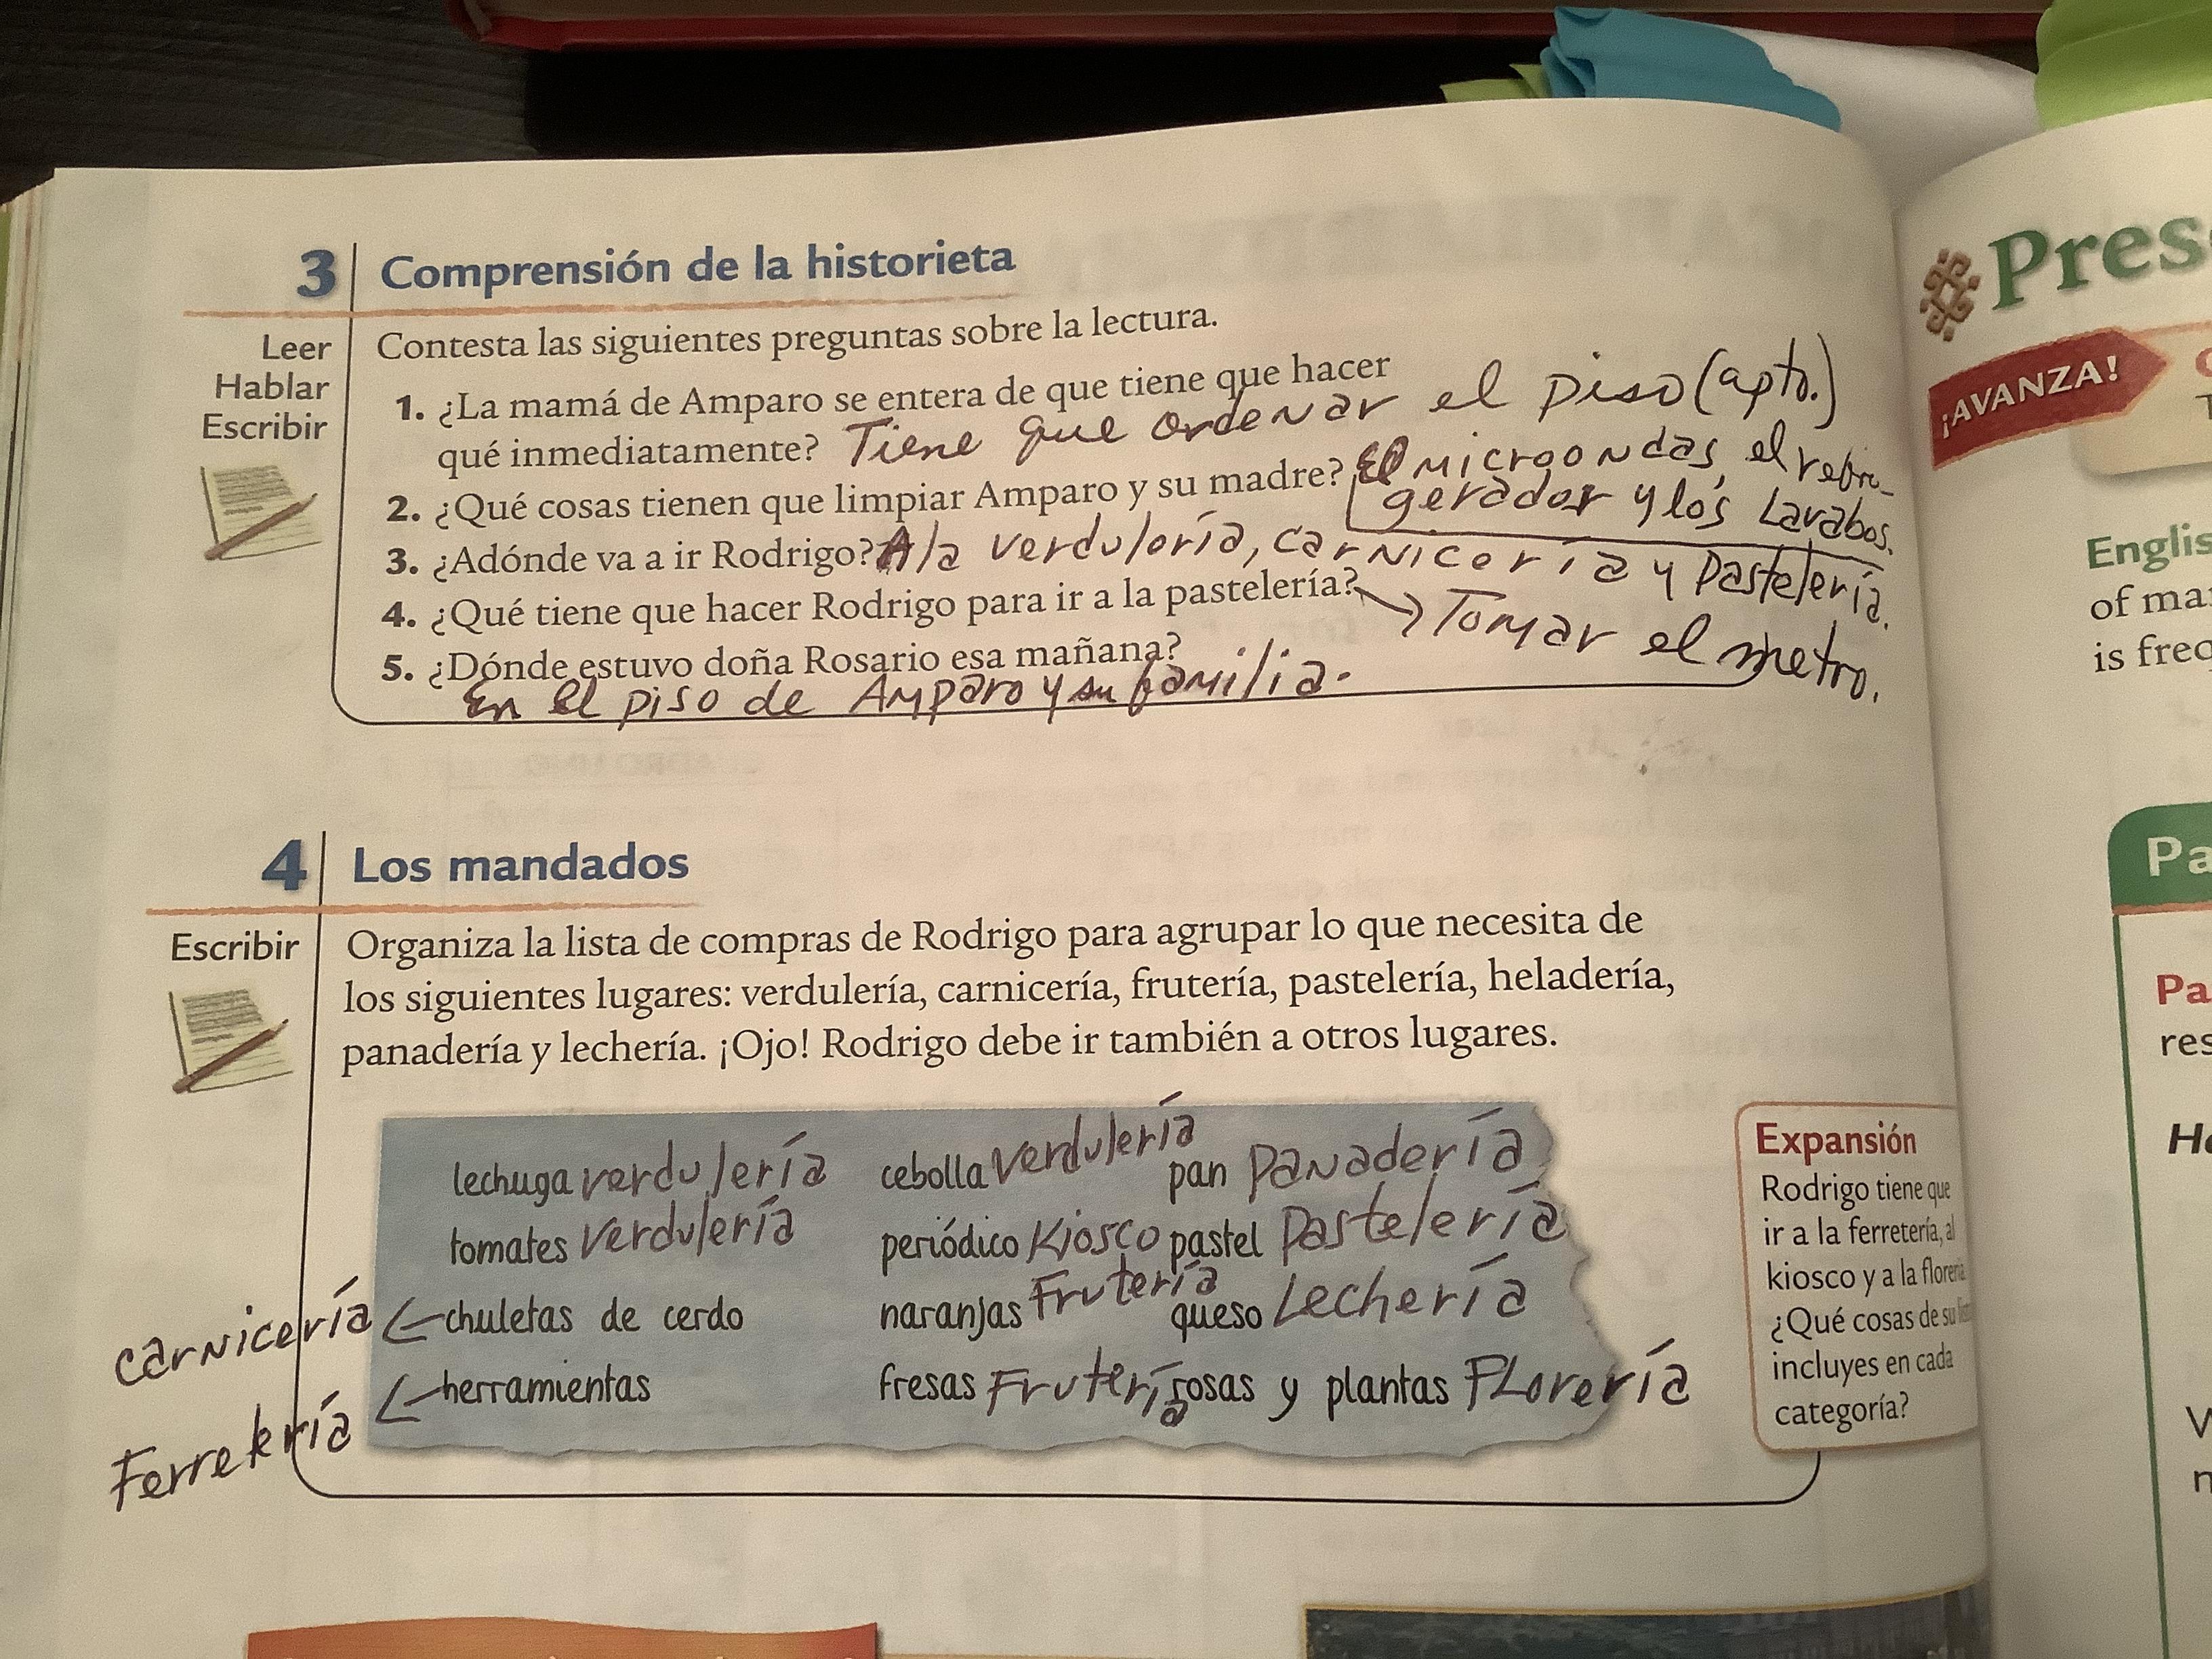 3 Comprensión de la historieta
Leer
Hablar
Escribir
Contesta las siguientes preguntas sobre la lectura.
1. ¿La mamá de Amparo se entera de que tiene que hacer
qué inmediatamente? Tiene que ordenar el piso (apto.)
2. ¿Qué cosas tienen que limpiar Amparo y su madre? El microondas, el refri-
gerador y los lavabos.
3. ¿Adónde va a ir Rodrigo? A la verdulería, carnicería y pastelería.
4. ¿Qué tiene que hacer Rodrigo para ir a la pastelería? Tomar el metro.
5. ¿Dónde estuvo doña Rosario esa mañana?
En el piso de Amparo y su familia.
4 Los mandados
Escribir
Organiza la lista de compras de Rodrigo para agrupar lo que necesita de
los siguientes lugares: verdulería, carnicería, frutería, pastelería, heladería,
panadería y lechería. ¡Ojo! Rodrigo debe ir también a otros lugares.
lechuga verdulería cebolla verdulería pan Panadería
tomates verdulería periódico Kiosco pastel Pastelería
carnicería chuletas de cerdo naranjas Frutería queso Lechería
Ferretería herramientas fresas Frutería rosas y plantas Florería
Expansión
Rodrigo tiene que
ir a la ferretería, al
kiosco y a la florería
¿Qué cosas de su
incluyes en cada
categoría?
Pres
¡AVANZA!
Englis
of ma
is freq
Pa
Pa
res